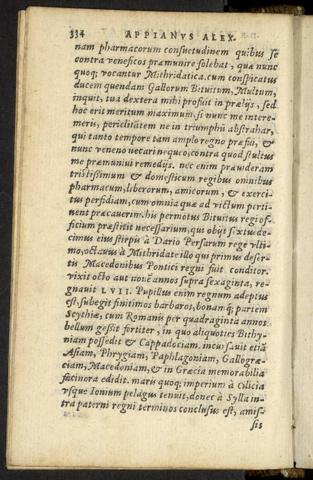 334 APPIANVS ALEX.
nam pharmacorum consuetudinem quibus se
contra veneficos præmunire solebat, quæ nunc
quoq; vocantur Mithridatica. cum conspicatus
ducem quendam Gallorum Bituitum, Multum,
inquit, tua dextera mihi profuit in prælijs, sed
hoc erit meritum maximum, si nunc me intere-
meris, periclitātem ne in triumphū abstrahar,
qui tanto tempore tam amplo regno præfui, &
nunc veneno necari nequeo, contra quod stultus
me præmuniui remedijs. nec enim præuideram
tristissimum & domesticum regibus omnibus
pharmacum, liberorum, amicorum, & exerci-
tus perfidiam, cum omnia quæ ad victum perti-
nent præcauerim. his permotus Bituitus regi of-
ficium præstitit necessarium, qui obijt sextus de-
cimus eius stirpis à Dario Persarum rege vlti-
mo, octauus à Mithridate illo qui primus deser-
tis Macedonibus Pontici regni fuit conditor.
vixit octo aut nouē annos supra sexaginta, re-
gnauit LVII. Pupillus enim regnum adeptus
est, subegit finitimos barbaros, bonamq́; partem
Scythiæ, cum Romanis per quadraginta annos
bellum gessit fortiter, in quo aliquoties Bithy-
niam possedit & Cappadociam. incursauit etiā
Asiam, Phrygiam, Paphlagoniam, Gallogræ-
ciam, Macedoniam, & in Græcia memorabilia
facinora edidit. maris quoq; imperium à Cilicia
vsque Ionium pelagus tenuit, donec à Sylla in-
tra paterni regni terminos conclusus est, amis-
sis